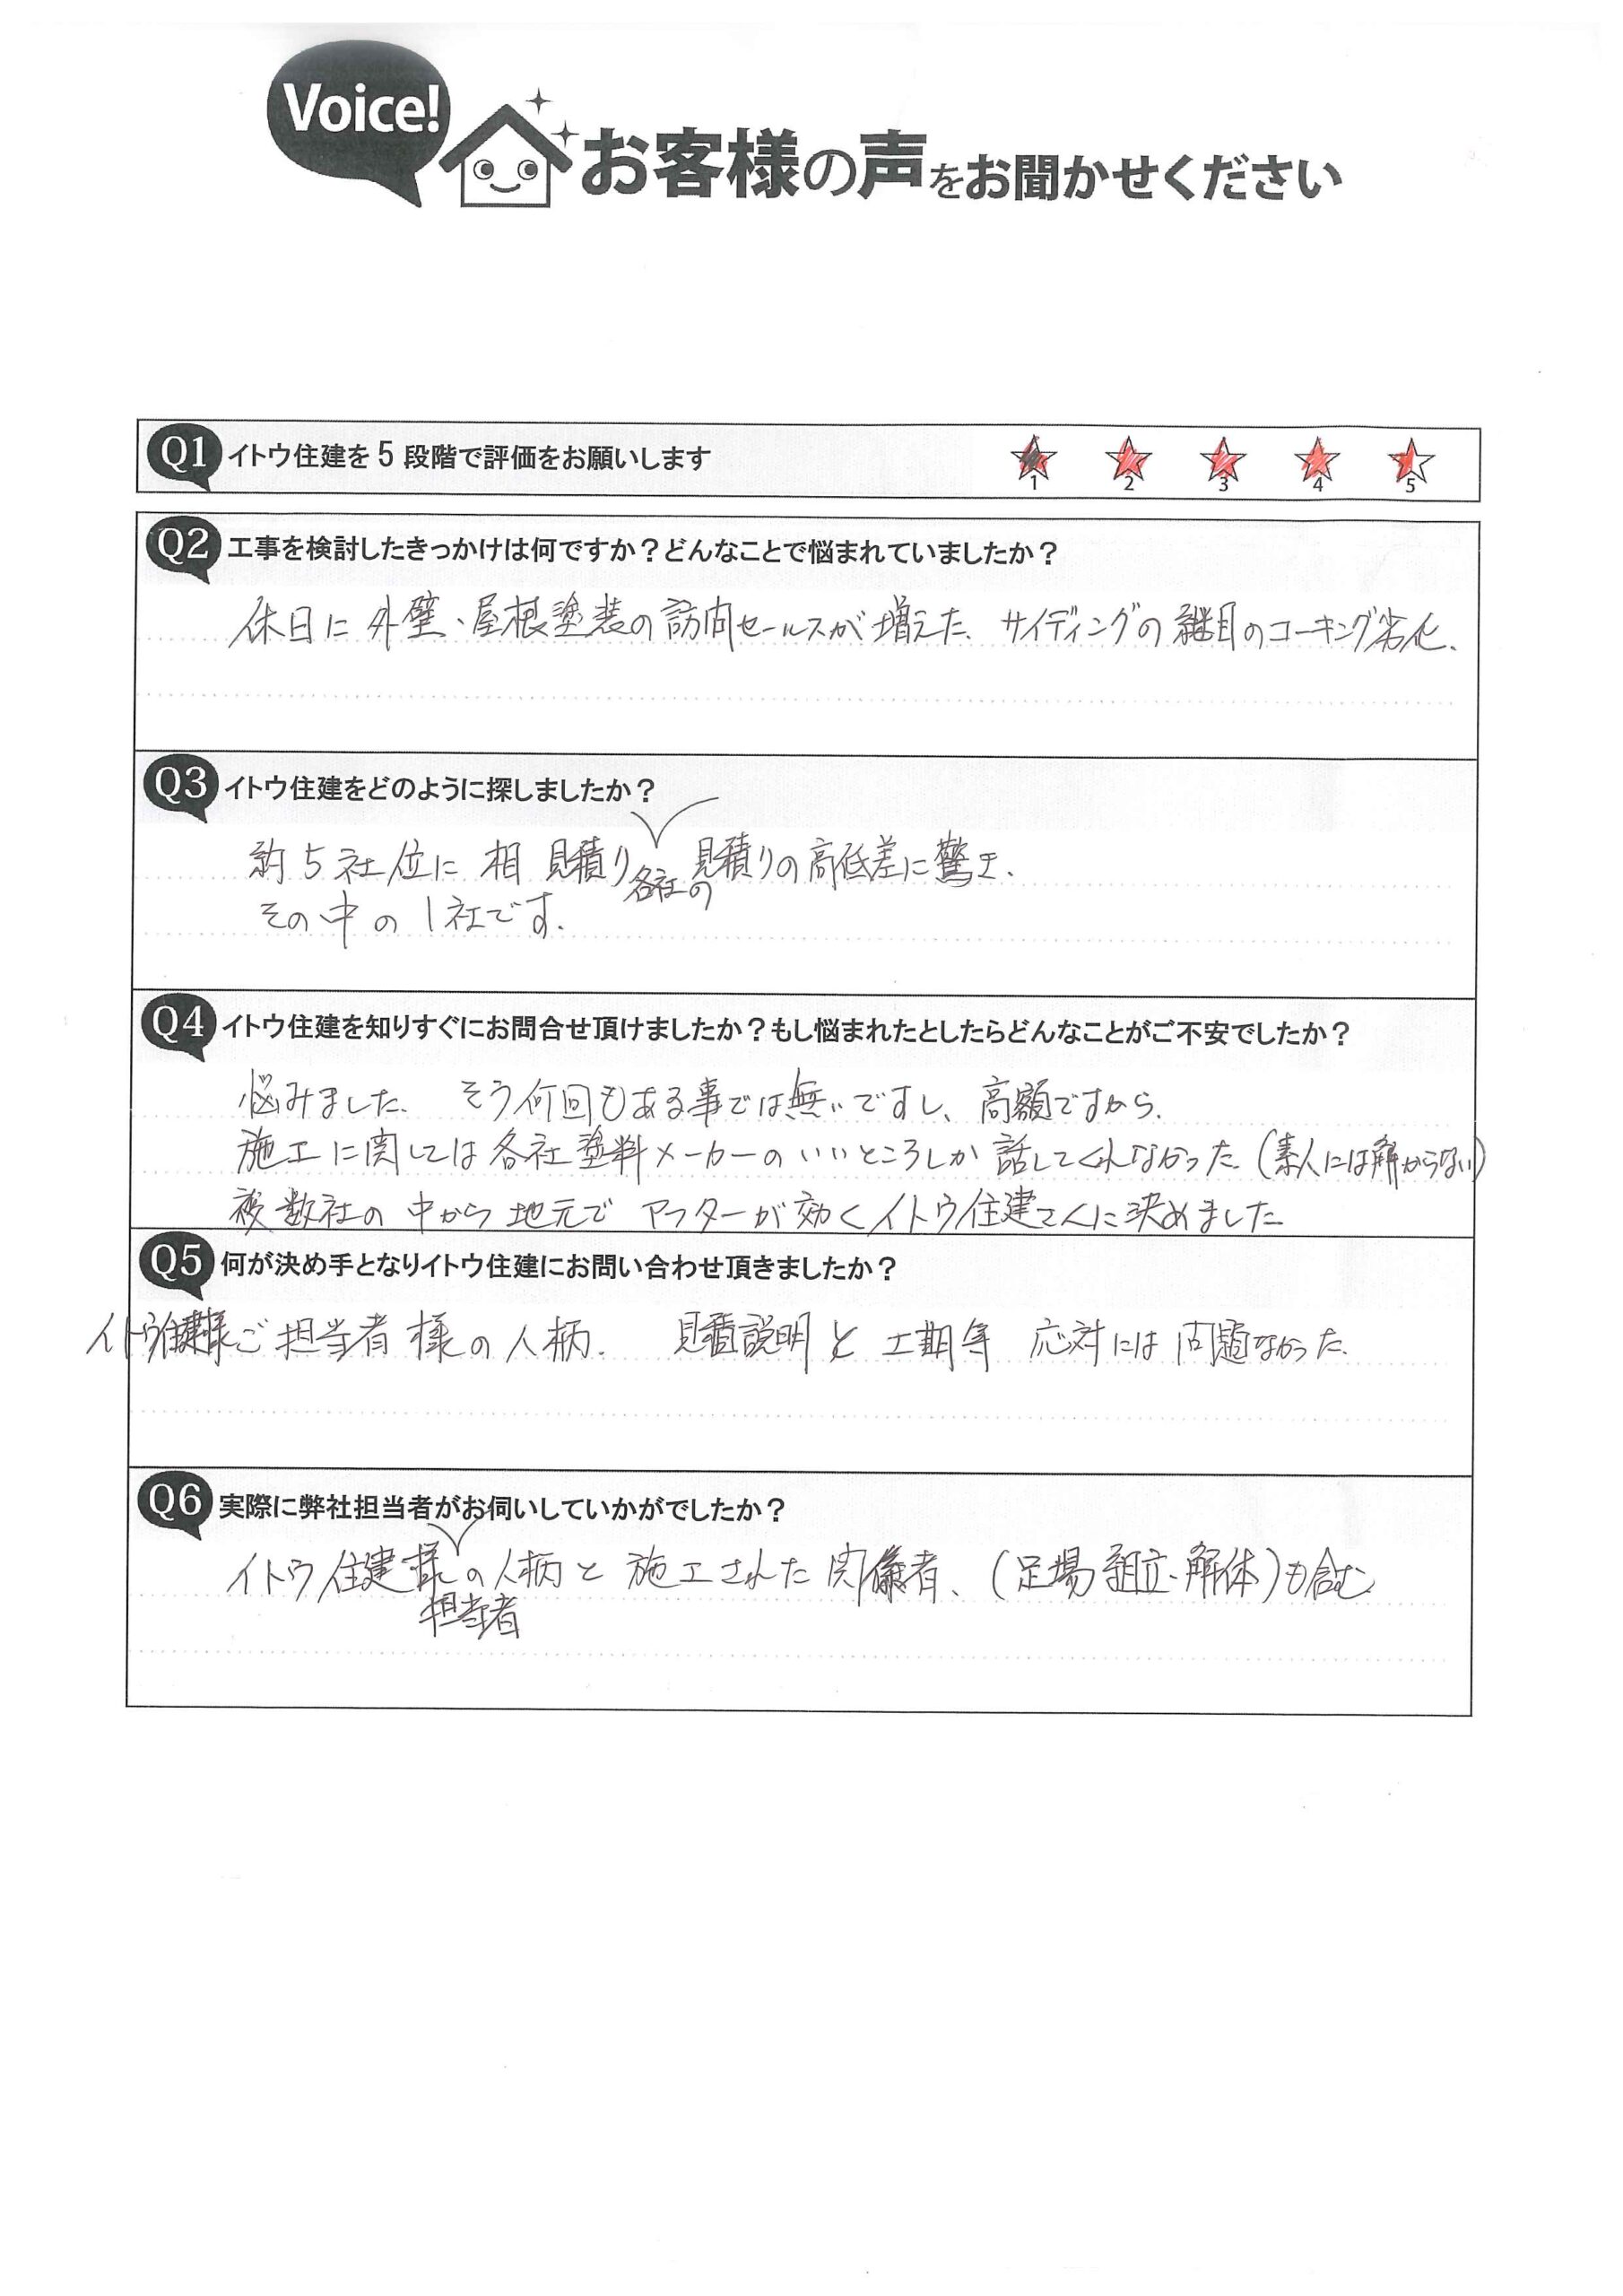 Voice!
お客様の声をお聞かせください
Q1 イトウ住建を5段階で評価をお願いします
1 2 3 4 5
Q2 工事を検討したきっかけは何ですか？どんなことで悩まれていましたか？
休日に外壁・屋根塗装の訪問セールスが増えた、サイディングの継目のコーキング劣化、
Q3 イトウ住建をどのように探しましたか？
約5社位に相見積り各社の見積りの高低差に驚き、
その中の1社です。
Q4 イトウ住建を知りすぐにお問合せ頂けましたか？もし悩まれたとしたらどんなことがご不安でしたか？
悩みました、そう何回もある事では無いですし、高額ですから、
施工に関しては各社塗料メーカーのいいところしか話してくれなかった（素人には解からない）
複数社の中から地元でアフターが効くイトウ住建さんに決めました
Q5 何が決め手となりイトウ住建にお問い合わせ頂きましたか？
イトウ住建様ご担当者様の人柄、見積説明と工期等応対には問題なかった、
Q6 実際に弊社担当者がお伺いしていかがでしたか？
イトウ住建様担当者の人柄と施工された関係者、（足場組立・解体）も含む